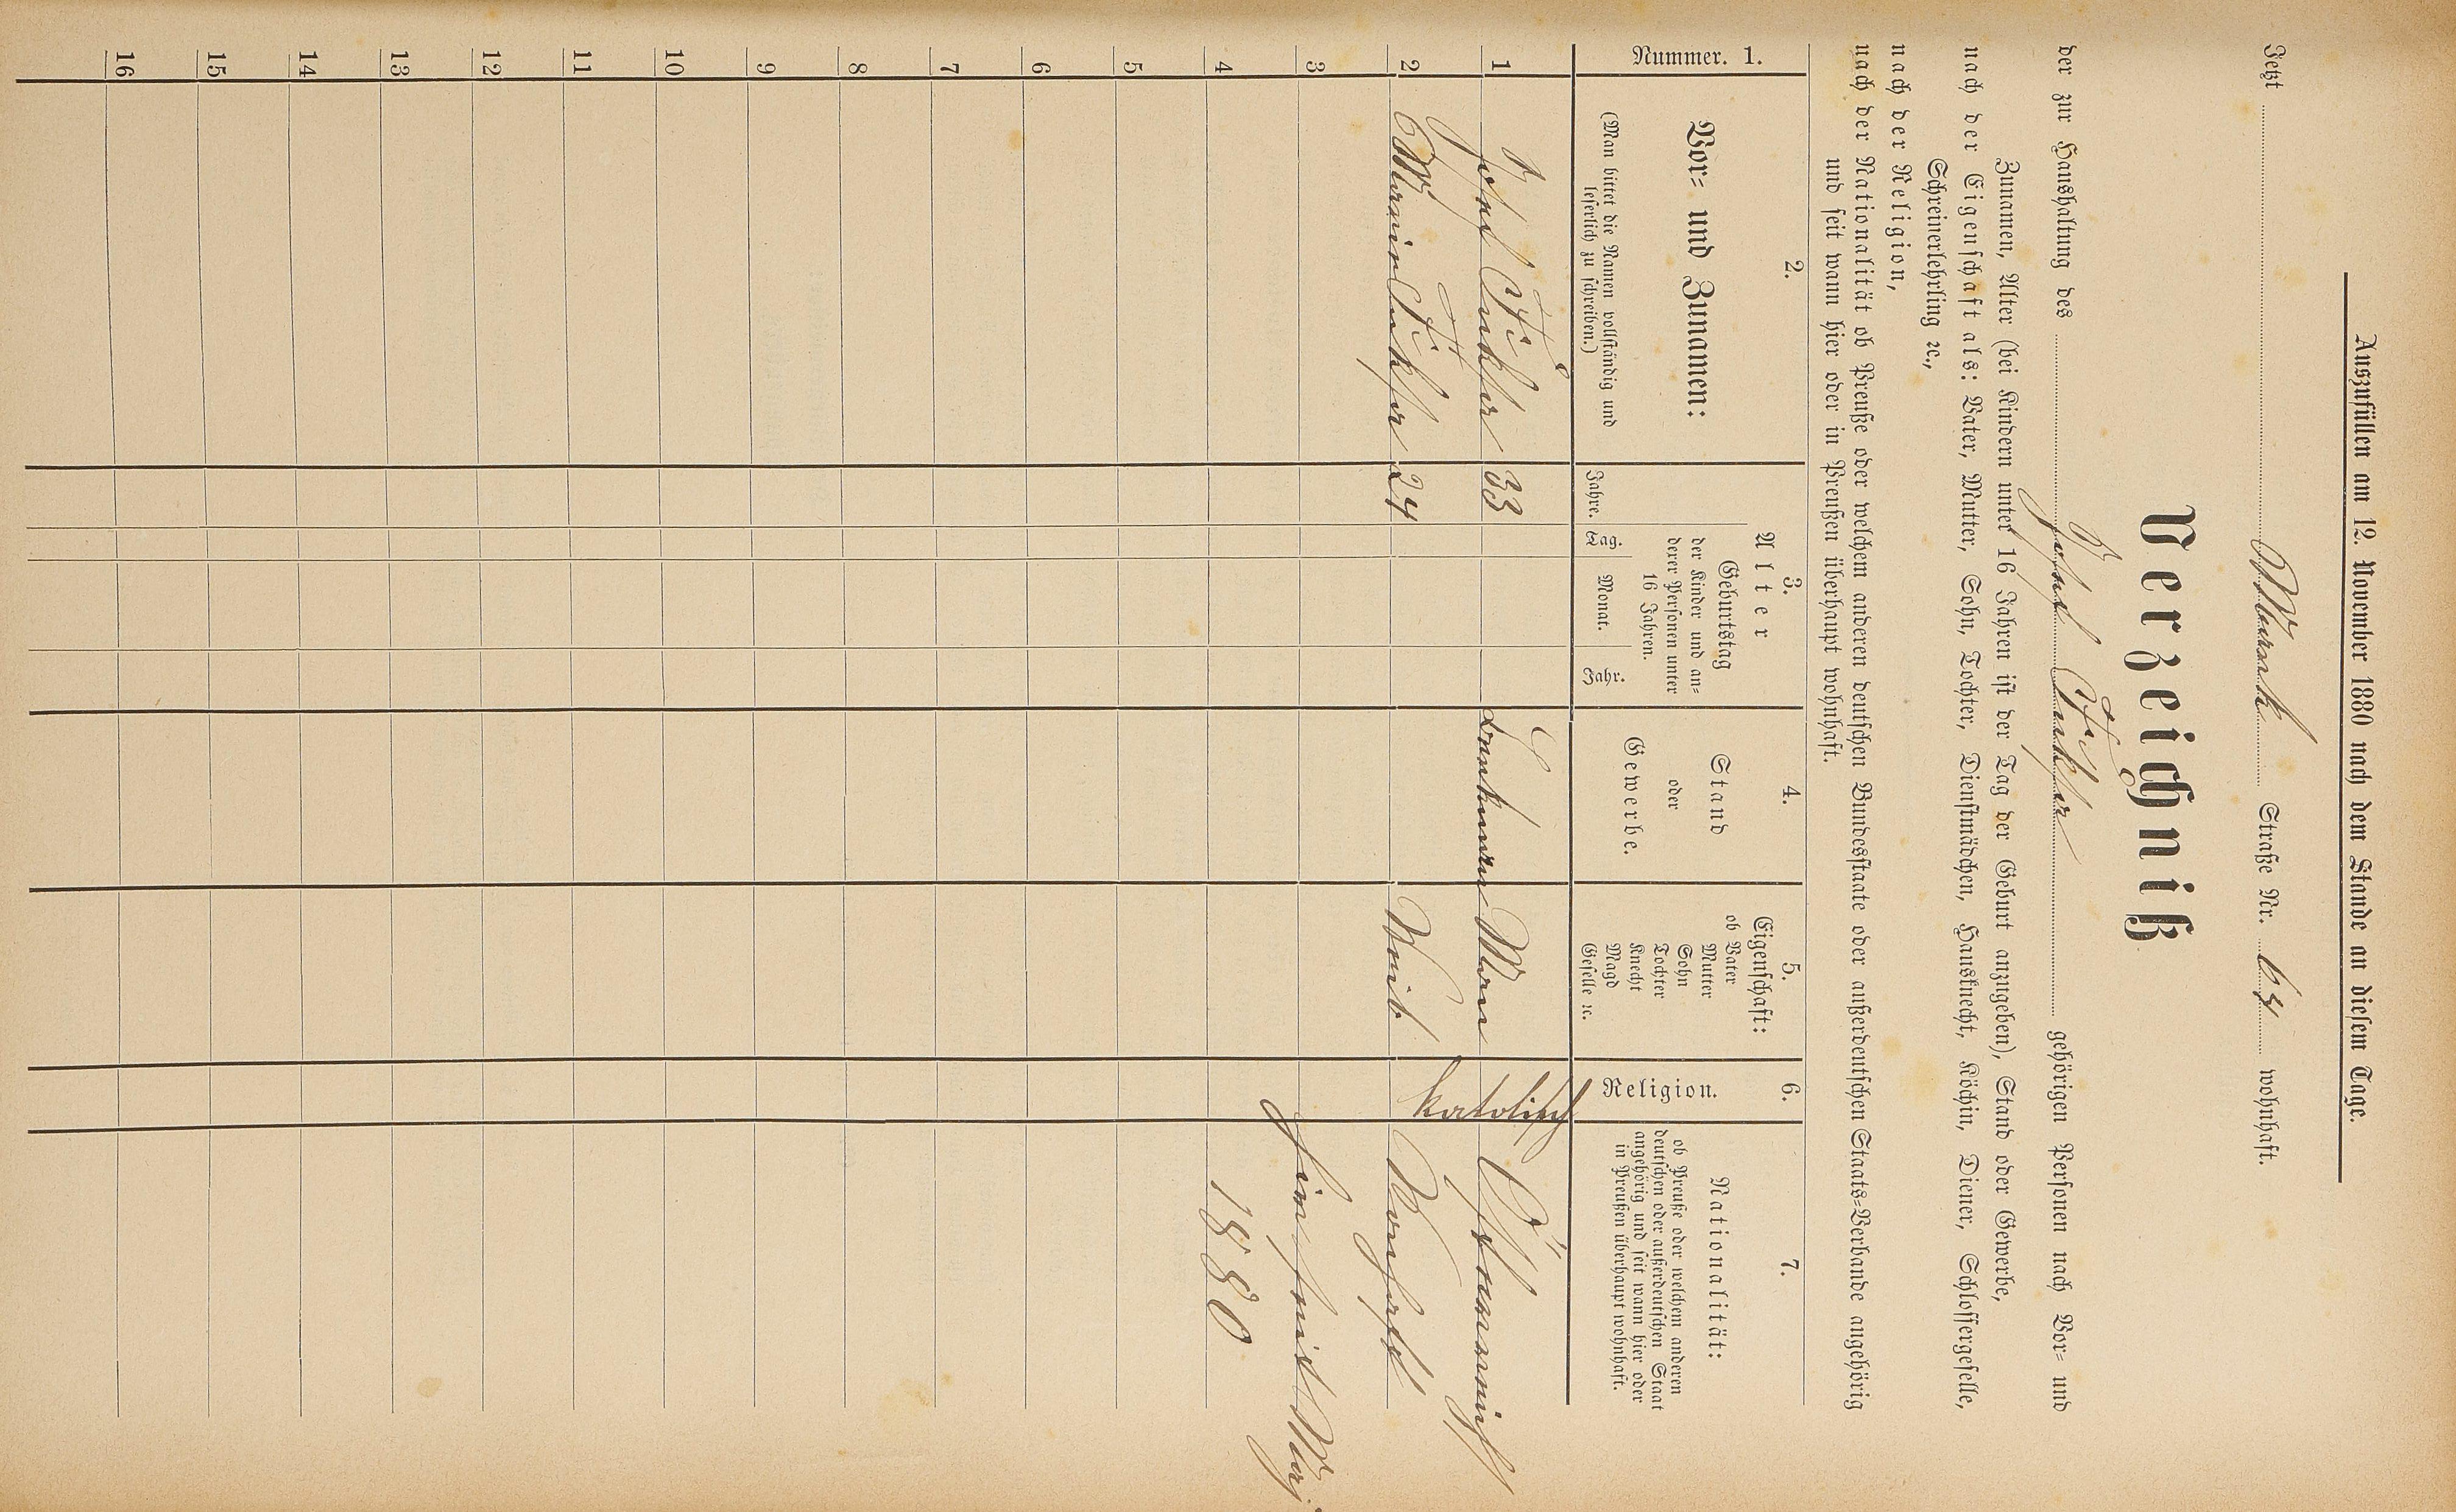 Auszufüllen am 12. November 1880 nach dem Stande an diesem Tage.
Jetzt Straße Nr. wohnhaft.
Verzeichniß
der zur Haushaltung des Josef gehörigen Personen nach Vor- und
Zunamen, Alter (bei Kindern unter 16 Jahren ist der Tag der Geburt anzugeben), Stand oder Gewerbe,
nach der Eigenschaft als: Vater, Mutter, Sohn, Tochter, Dienstmädchen, Hausknecht, Köchin, Diener, Schlossergeselle,
Schreinerlehrling ꝛc.,
nach der Religion,
nach der Nationalität ob Preuße oder welchem anderen deutschen Bundesstaate oder außerdeutschen Staats-Verbande angehörig
und seit wann hier oder in Preußen überhaupt wohnhaft.
Nummer. 1.
2.
Vor- und Zunamen:
(Man bittet die Namen vollständig und
leserlich zu schreiben.)
3.
Alter
Jahre.
Geburtstag
der Kinder und an-
derer Personen unter
16 Jahren.
Tag. Monat. Jahr.
4.
Stand
oder
Gewerbe.
5.
Eigenschaft:
ob Vater
Mutter
Sohn
Tochter
Knecht
Magd
Geselle ꝛc.
6.
Religion.
7.
Nationalität:
ob Preuße oder welchem anderen
deutschen oder außerdeutschen Staat
angehörig und seit wann hier oder
in Preußen überhaupt wohnhaft.
1 Josef 33 Mann katolisch
2 24 Weib
3 hier seit Mai
4 1880
5
6
7
8
9
10
11
12
13
14
15
16